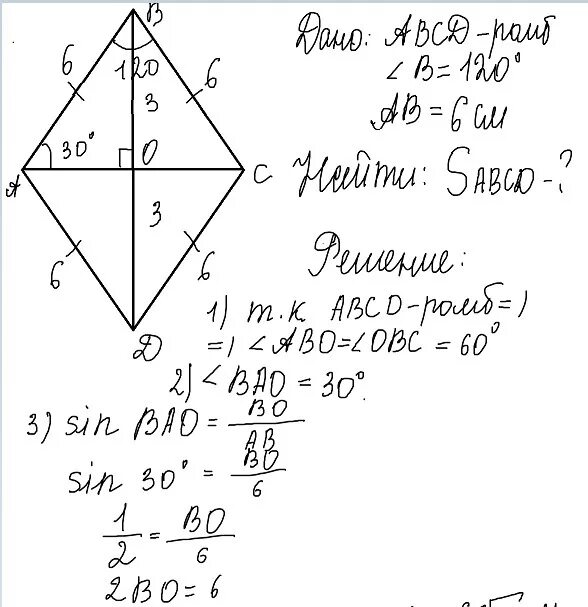 B
6
120
6
3
30°
O
A
C
3
6
6
D
Дано: ABCD-ромб
∠B=120°
AB=6см
Найти: SABCD-?
Решение:
1) т.к ABCD-ромб=)
=) ∠ABO=∠OBC=60°
2) ∠BAO=30°
3) sin BAO = BO/AB
sin 30° = BO/6
1/2 = BO/6
2BO=6